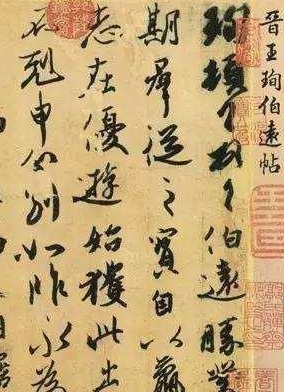 晋王珣伯遠帖
珣頓首頓首伯遠勝業
期羣從之寶自以羸
志在優遊始獲此出
不剋申分別如昨永為